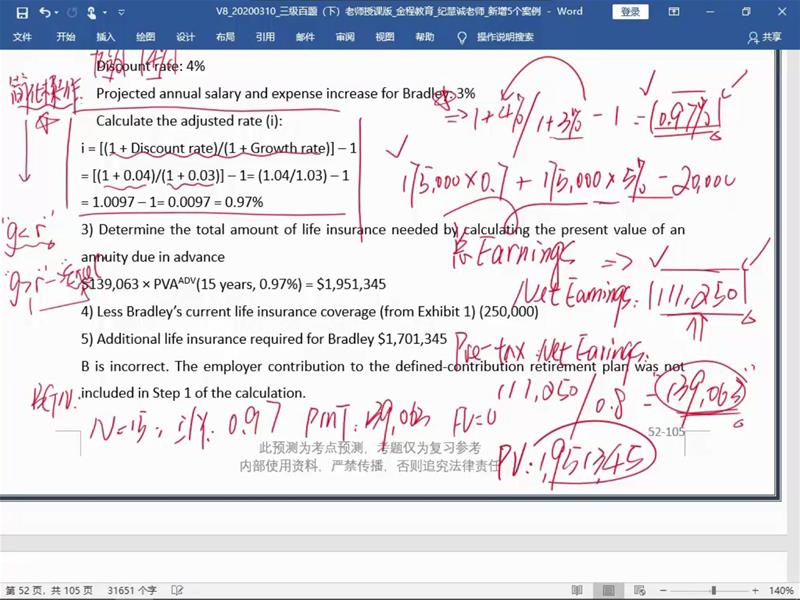 V8_20200310_三级百题（下）老师授课版_金程教育_纪慧诚老师_新增5个案例 - Word
登录
文件 开始 插入 绘图 设计 布局 引用 邮件 审阅 视图 帮助 操作说明搜索 共享
Discount rate: 4%
简化操作
Projected annual salary and expense increase for Bradley: 3%
=> 1+4%/1+3% - 1 = 0.97%
Calculate the adjusted rate (i):
i = [(1 + Discount rate)/(1 + Growth rate)] – 1
= [(1 + 0.04)/(1 + 0.03)] – 1= (1.04/1.03) – 1
175,000×0.7 + 175,000×5% - 20,000
= 1.0097 – 1= 0.0097 = 0.97%
"g<r"
3) Determine the total amount of life insurance needed by calculating the present value of an
annuity due in advance
总Earnings =>
"g>r"
$139,063 × PVAᴬᴰⱽ(15 years, 0.97%) = $1,951,345
Net Earnings: 111,250
4) Less Bradley's current life insurance coverage (from Exhibit 1) (250,000)
5) Additional life insurance required for Bradley $1,701,345
Pre-tax Net Earings:
B is incorrect. The employer contribution to the defined-contribution retirement plan was not
included in Step 1 of the calculation.
111,250/0.8 = "139,063"
BGN.
N=15, I/Y: 0.97 PMT: 139,063 FV=0
52-105
此预测为考点预测，考题仅为复习参考
内部使用资料，严禁传播，否则追究法律责任
PV: 1,951,345
第 52 页，共 105 页 31651 个字 140%